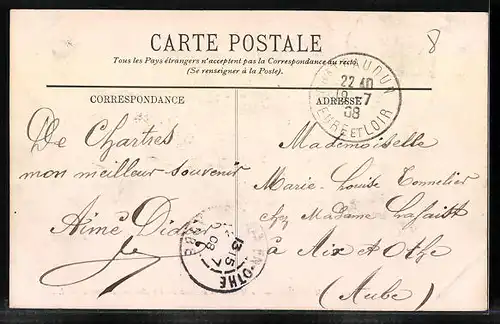 8
CARTE POSTALE
Tous les Pays étrangers n'acceptent pas la Correspondance au recto
(Se renseigner à la Poste).
CORRESPONDANCE
De Chartres
mon meilleur souvenir
Aimé Didier
ADRESSE
Mademoiselle
Marie-Louise Tonnelier
chez Madame Lafaist
à Aix et Othe
(Aube)
22 40
7
08
EURE ET LOIR
EN-OTHE
13 15
7
08